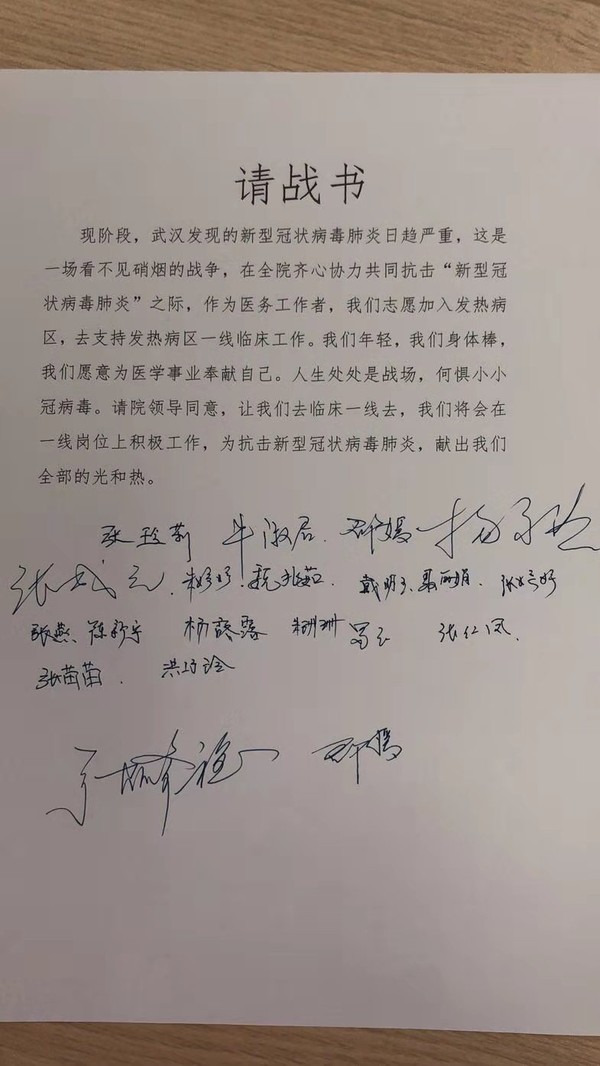 请战书
现阶段，武汉发现的新型冠状病毒肺炎日趋严重，这是
一场看不见硝烟的战争，在全院齐心协力共同抗击“新型冠
状病毒肺炎”之际，作为医务工作者，我们志愿加入发热病
区，去支持发热病区一线临床工作。我们年轻，我们身体棒，
我们愿意为医学事业奉献自己。人生处处是战场，何惧小小
冠病毒。请院领导同意，让我们去临床一线去，我们将会在
一线岗位上积极工作，为抗击新型冠状病毒肺炎，献出我们
全部的光和热。
牛淑君
张燕 张仁凤
张苗苗